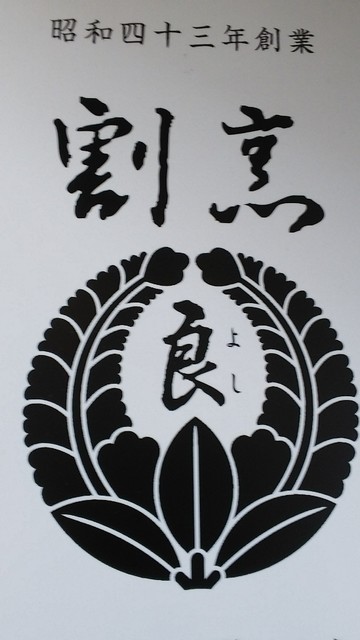 昭和四十三年創業
割烹
良
よし